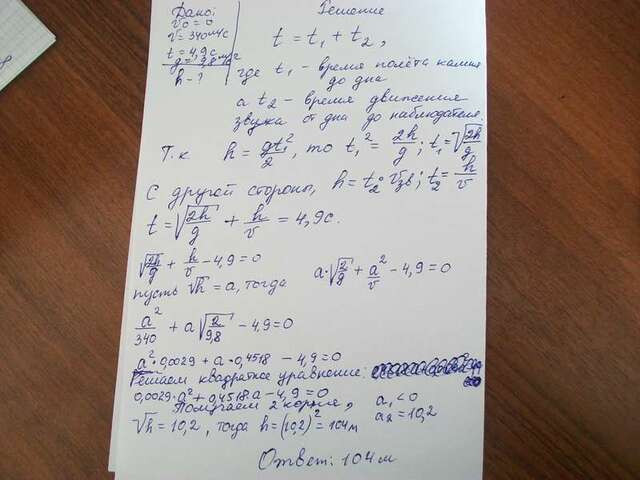 Дано:
V₀ = 0
V = 340 м/с
t = 4,9 с
g = 9,8 м/с²
h - ?
Решение
t = t₁ + t₂,
где t₁ - время полёта камня
до дна
а t₂ - время движения
звука от дна до наблюдателя.
Т.к h = gt₁²/2, то t₁² = 2h/g; t₁ = √(2h/g)
С другой стороны, h = t₂·Vзв; t₂ = h/V
t = √(2h/g) + h/V = 4,9 с.
√(2h/g) + h/V - 4,9 = 0
пусть √h = a, тогда a·√(2/g) + a²/V - 4,9 = 0
a²/340 + a√(2/9,8) - 4,9 = 0
a²·0,0029 + a·0,4518 - 4,9 = 0
Решаем квадратное уравнение:
0,0029·a² + 0,4518·a - 4,9 = 0
Получаем 2 корня, a₁ < 0
a₂ = 10,2
√h = 10,2, тогда h = (10,2)² = 104 м
Ответ: 104 м